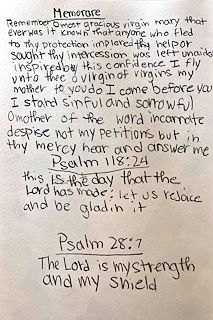 Memorare
Remember O most gracious virgin mary that
ever was it known that anyone who fled
to thy protection implored thy help or
sought thy intercession was left unaided
inspired by this confidence I fly
unto thee o virgin of virgins my
mother to you do I come before you
I stand sinful and sorrowful
O mother of the word incarnate
despise not my petitions but in
thy mercy hear and answer me
Psalm 118:24
this is the day that the
Lord has made; let us rejoice
and be glad in it
Psalm 28:7
The Lord is my strength
and my shield